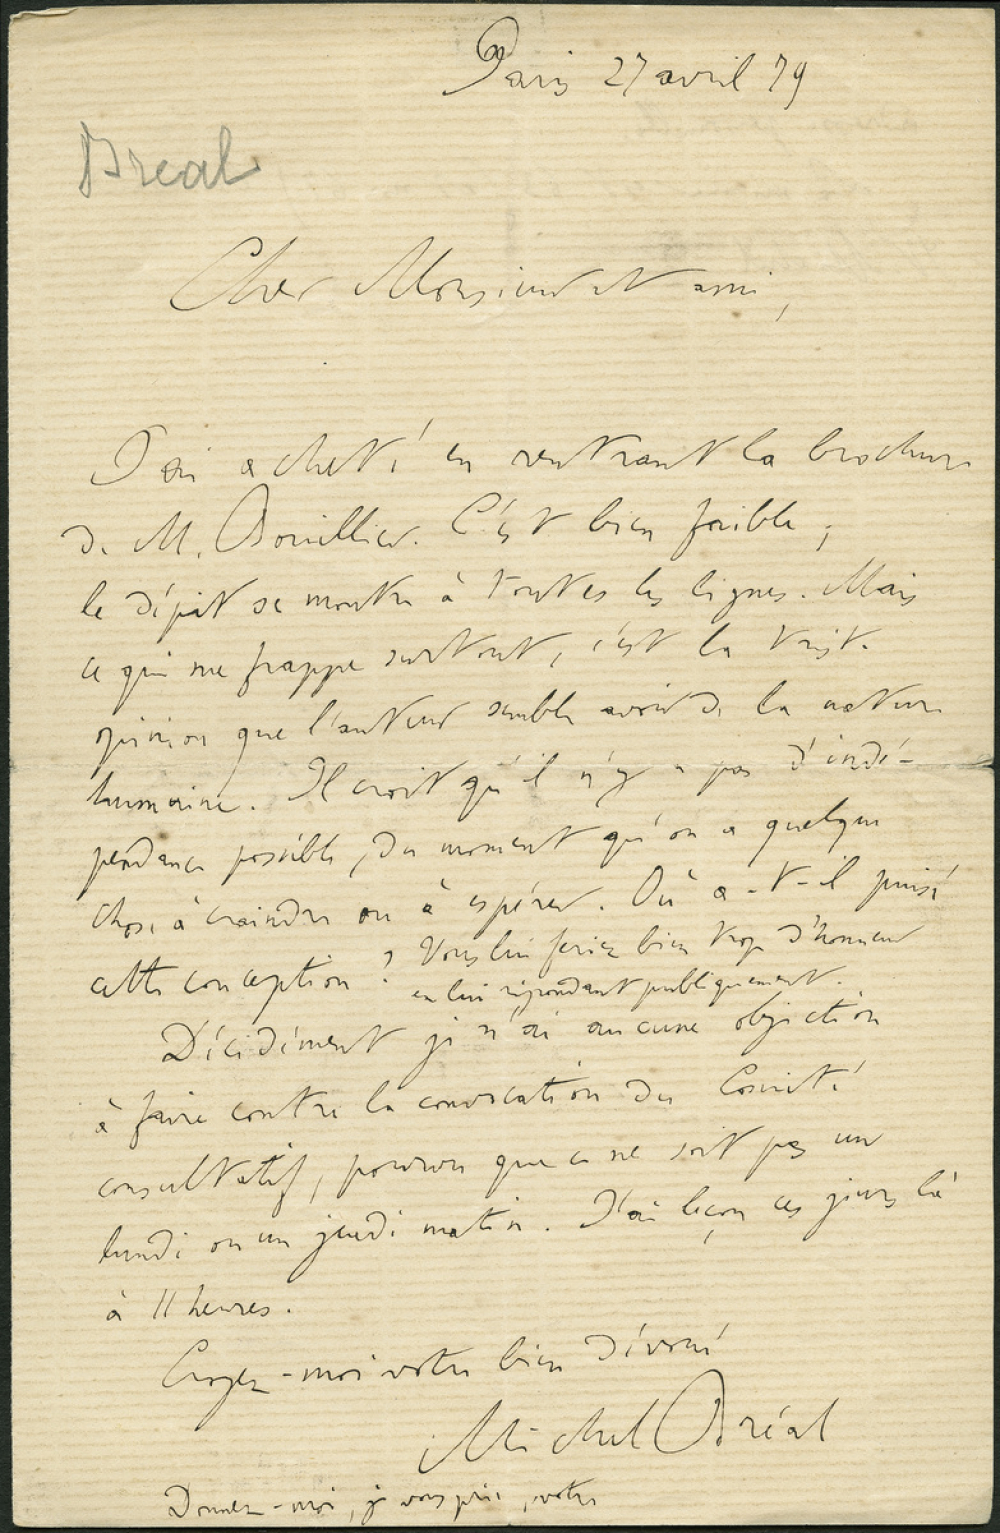 Paris 27 avril 79
Bréal
Cher Monsieur et ami,
J'ai acheté en rentrant la brochure
de M. Bouillier. C'est bien faible ;
le dépit se montre à toutes les lignes. Mais
ce qui me frappe surtout, c'est la triste
opinion que l'auteur semble avoir de la nature
humaine. Il croit qu'il n'y a pas d'indé-
pendance possible, du moment qu'on a quelque
chose à craindre ou à espérer. Où a-t-il puisé
cette conception ? Vous lui feriez bien trop d'honneur
en lui répondant publiquement.
Décidément je n'ai aucune objection
à faire contre la convocation du Comité
consultatif, pourvu que ce ne soit pas un
lundi ou un jeudi matin. J'ai leçon ces jours là
à 11 heures.
Croyez-moi votre bien dévoué
Michel Bréal
Donnez-moi, je vous prie, votre